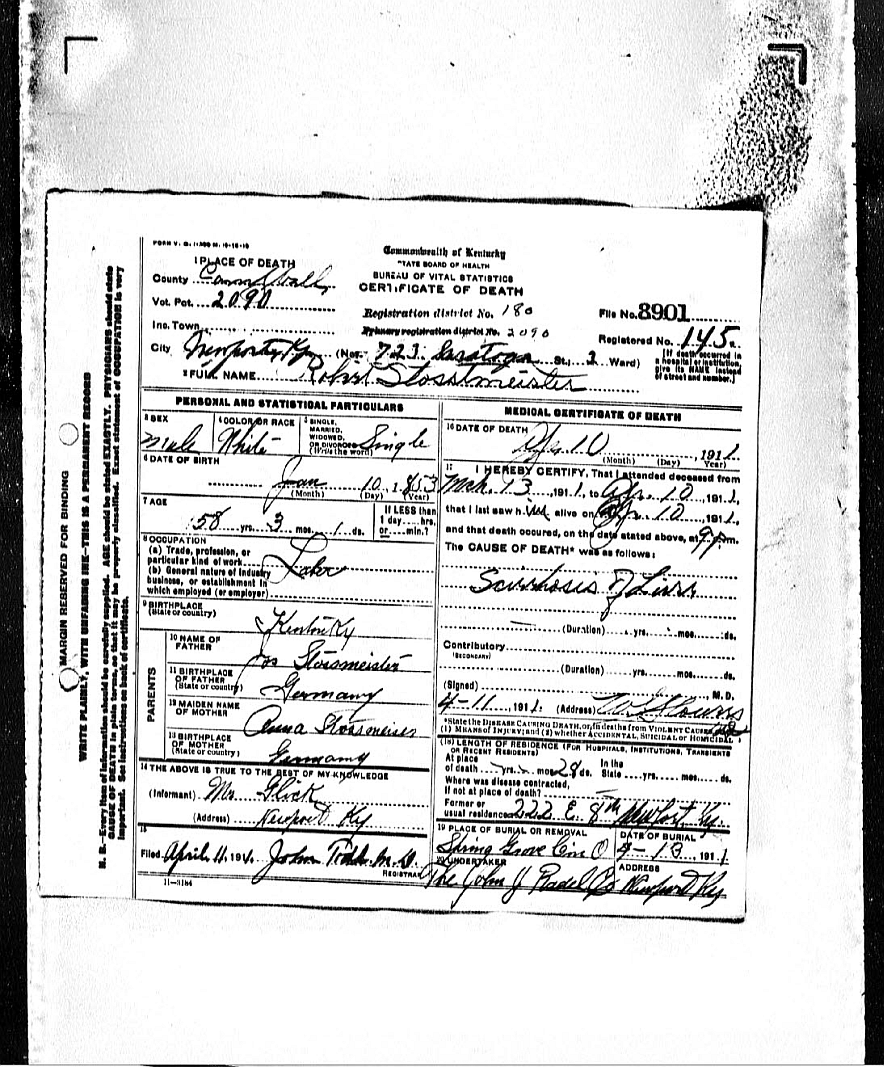 FORM V. S. 1-300 M. 10-15-10
Commonwealth of Kentucky
STATE BOARD OF HEALTH
BUREAU OF VITAL STATISTICS
CERTIFICATE OF DEATH
1 PLACE OF DEATH
County Campbell
Vot. Pct. 2090
Registration district No. 180
File No. 8901
Inc. Town
Primary registration district No. 2090
Registered No. 145
City Newport Ky (No. 723 Saratoga St., 3 Ward)
[If death occurred in a hospital or institution, give its NAME instead of street and number.]
2 FULL NAME Robert Stosstmeister
PERSONAL AND STATISTICAL PARTICULARS
3 SEX Male
4 COLOR OR RACE White
5 SINGLE, MARRIED, WIDOWED, OR DIVORCED (Write the word) Single
6 DATE OF BIRTH
Jan 10, 1853
(Month) (Day) (Year)
7 AGE
58 yrs. 3 mos. 1 ds.
If LESS than 1 day....hrs. or....min.?
8 OCCUPATION
(a) Trade, profession, or particular kind of work Labor
(b) General nature of industry business, or establishment in which employed (or employer)
9 BIRTHPLACE
(State or country) Kentucky
PARENTS
10 NAME OF FATHER Jos Stossmeister
11 BIRTHPLACE OF FATHER (State or country) Germany
12 MAIDEN NAME OF MOTHER Anna
13 BIRTHPLACE OF MOTHER (State or country) Germany
14 THE ABOVE IS TRUE TO THE BEST OF MY KNOWLEDGE
(Informant) Mr. Glick
(Address) Newport Ky
15
Filed April 11, 1911. John Todd M.D.
REGISTRAR
11-3184
MEDICAL CERTIFICATE OF DEATH
16 DATE OF DEATH
Apr 10, 1911.
(Month) (Day) (Year)
17 I HEREBY CERTIFY, That I attended deceased from
Mch 13, 1911, to Apr. 10, 1911,
that I last saw him alive on Apr. 10, 1911,
and that death occured, on the date stated above, at 9 p.m.
The CAUSE OF DEATH* was as follows:
Scirrhosis of Liver
(Duration) yrs. mos. ds.
Contributory
(SECONDARY)
(Duration) yrs. mos. ds.
(Signed) , M.D.
4-11, 1911. (Address)
*State the DISEASE CAUSING DEATH, or, in deaths from VIOLENT CAUSES, state
(1) MEANS OF INJURY; and (2) whether ACCIDENTAL, SUICIDAL or HOMICIDAL.
(18) LENGTH OF RESIDENCE (FOR HOSPITALS, INSTITUTIONS, TRANSIENTS OR RECENT RESIDENTS)
At place of death yrs. mos. 28 ds. In the State yrs. mos. ds.
Where was disease contracted,
If not at place of death?
Former or usual residence 222 E. 8th Newport Ky.
19 PLACE OF BURIAL OR REMOVAL
Spring Grove Cin O
DATE OF BURIAL
4-13, 1911
20 UNDERTAKER
The John J Radel Co
ADDRESS
Newport Ky
MARGIN RESERVED FOR BINDING
WRITE PLAINLY, WITH UNFADING INK—THIS IS A PERMANENT RECORD
N. B.—Every item of information should be carefully supplied. AGE should be stated EXACTLY. PHYSICIANS should state
CAUSE OF DEATH in plain terms, so that it may be properly classified. Exact statement of OCCUPATION is very
important. See instructions on back of certificate.